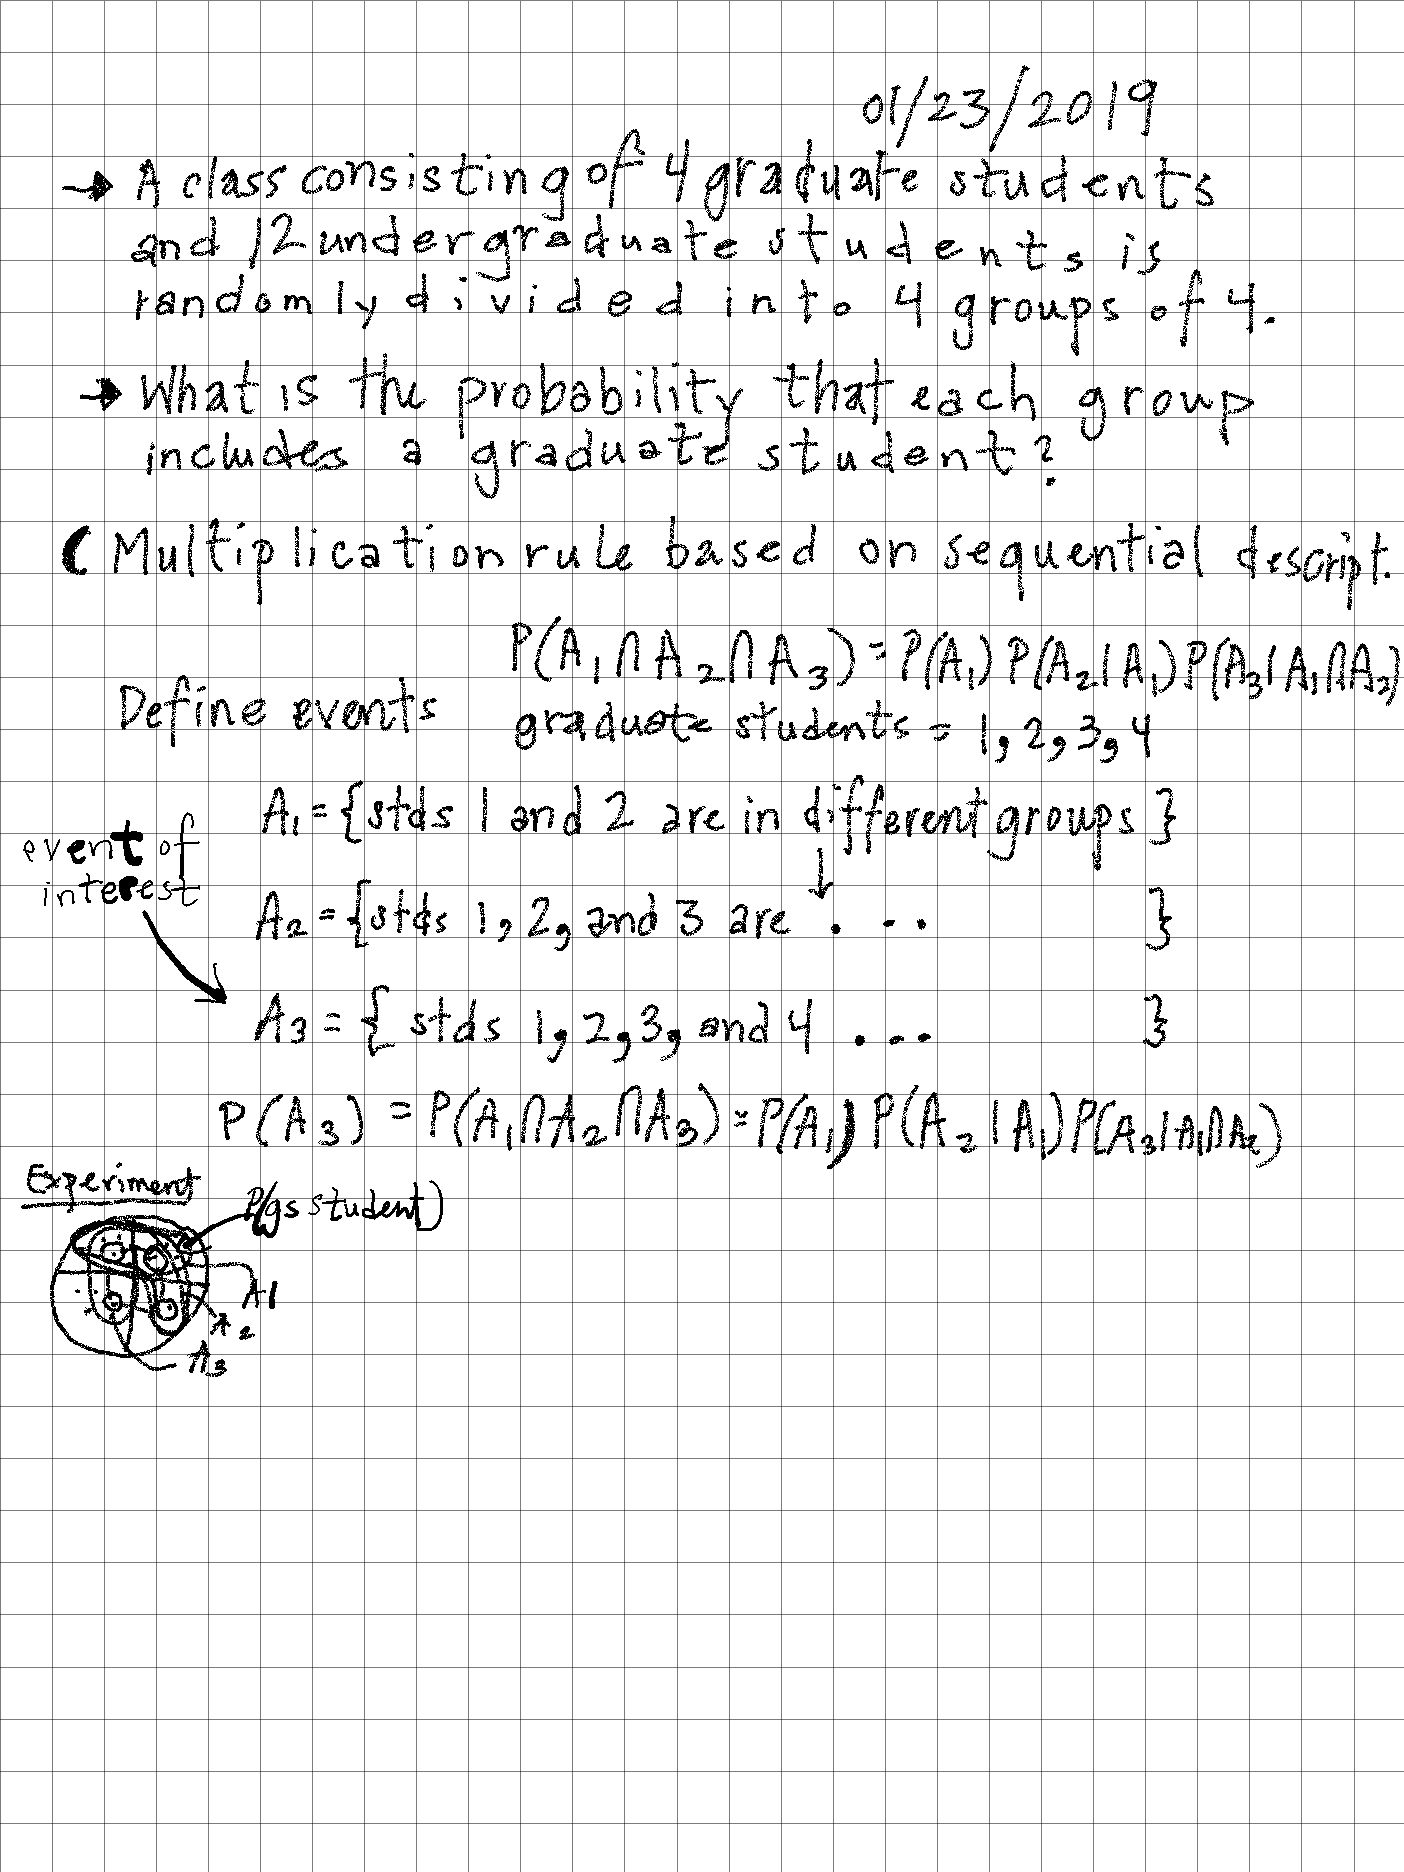 01/23/2019
→ A class consisting of 4 graduate students
and 12 undergraduate students is
randomly divided into 4 groups of 4.
→ What is the probability that each group
includes a graduate student?
( Multiplication rule based on sequential descript.
P(A₁∩A₂∩A₃) = P(A₁) P(A₂|A₁) P(A₃|A₁∩A₂)
Define events
graduate students = 1, 2, 3, 4
A₁ = {stds 1 and 2 are in different groups }
event of
interest
↓
A₂ = {stds 1, 2, and 3 are . . . }
A₃ = { stds 1, 2, 3, and 4 ... }
P(A₃) = P(A₁∩A₂∩A₃) = P(A₁) P(A₂|A₁) P(A₃|A₁∩A₂)
Experiment
P(gs student)
A1
A₂
A₃